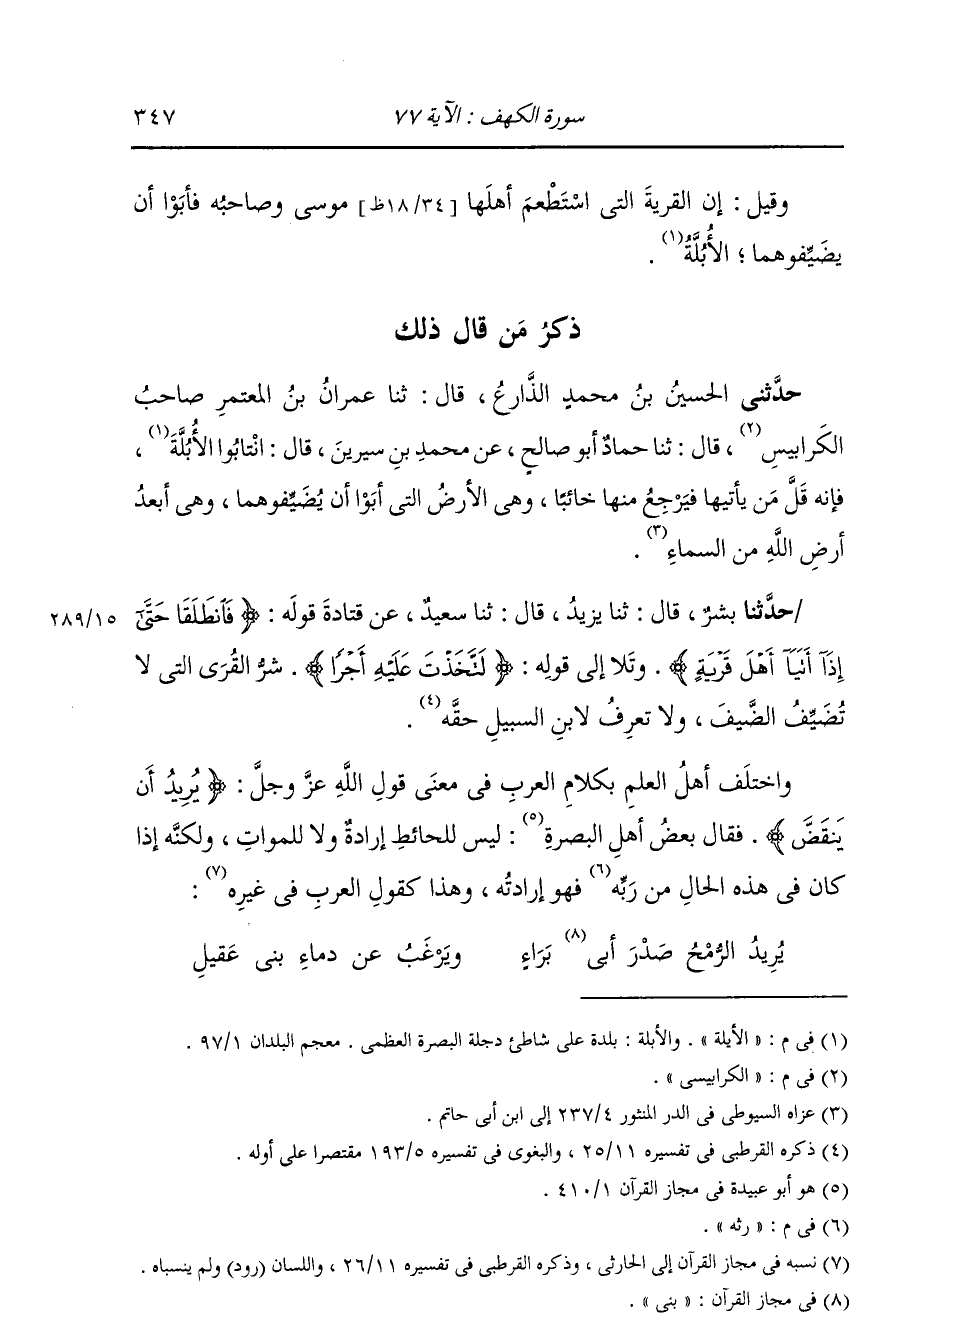 سورة الكهف : الآية ٧٧ ٣٤٧
وقيل : إن القريةَ التى اسْتَطْعمَ أهلَها [١٨/٣٤ظ] موسى وصاحبُه فأبَوْا أن
يضَيِّفوهما ؛ الأُبُلَّةُ(١) .
ذكرُ مَن قال ذلك
حدَّثنى الحسينُ بنُ محمدٍ الذَّارعُ ، قال : ثنا عمرانُ بنُ المعتمرِ صاحبُ
الكَرابيسِ(٢) ، قال : ثنا حمادٌ أبو صالحٍ ، عن محمدِ بنِ سيرينَ ، قال : انْتابُوا الأُبُلَّةَ(١) ،
فإنه قَلَّ مَن يأتيها فيَرْجِعُ منها خائبًا ، وهى الأرضُ التى أبَوْا أن يُضَيِّفوهما ، وهى أبعدُ
أرضِ اللَّهِ من السماءِ(٣) .
/حدَّثنا بشرٌ ، قال : ثنا يزيدُ ، قال : ثنا سعيدٌ ، عن قتادةَ قولَه : ﴿ فَٱنطَلَقَا حَتَّىٰٓ ٢٨٩/١٥
إِذَآ أَنَيَآ أَهْلَ قَرْيَةٍ ﴾ . وتَلا إلى قولِه : ﴿ لَتَّخَذْتَ عَلَيْهِ أَجْرًا ﴾ . شرُّ القُرَى التى لا
تُضَيِّفُ الضَّيفَ ، ولا تعرِفُ لابنِ السبيلِ حقَّه(٤) .
واختلَف أهلُ العلمِ بكلامِ العربِ فى معنَى قولِ اللَّهِ عزَّ وجلَّ : ﴿ يُرِيدُ أَن
يَنقَضَّ ﴾ . فقال بعضُ أهلِ البصرةِ(٥) : ليس للحائطِ إرادةٌ ولا للمواتِ ، ولكنَّه إذا
كان فى هذه الحالِ من رَبِّه(٦) فهو إرادتُه ، وهذا كقولِ العربِ فى غيرِه(٧) :
يُرِيدُ الرُّمْحُ صَدْرَ أبى(٨) بَرَاءٍ ويَرْغَبُ عن دماءِ بنى عَقيلِ
(١) فى م : « الأيلة » . والأبلة : بلدة على شاطئ دجلة البصرة العظمى . معجم البلدان ٩٧/١ .
(٢) فى م : « الكرابيسى » .
(٣) عزاه السيوطى فى الدر المنثور ٢٣٧/٤ إلى ابن أبى حاتم .
(٤) ذكره القرطبى فى تفسيره ٢٥/١١ ، والبغوى فى تفسيره ١٩٣/٥ مقتصرا على أوله .
(٥) هو أبو عبيدة فى مجاز القرآن ٤١٠/١ .
(٦) فى م : « رثه » .
(٧) نسبه فى مجاز القرآن إلى الحارثى ، وذكره القرطبى فى تفسيره ٢٦/١١ ، واللسان (رود) ولم ينسباه .
(٨) فى مجاز القرآن : « بنى » .